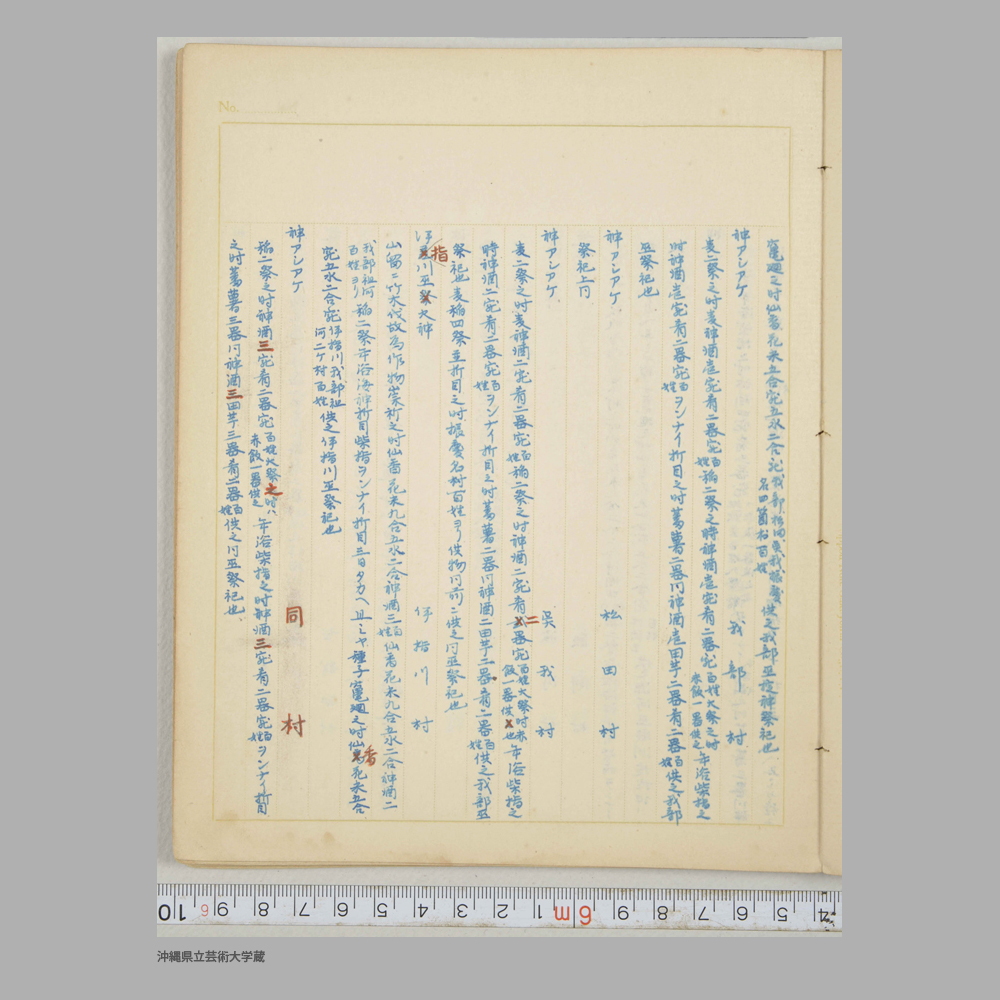 竃廻之時仙香花米五合宛五水二合宛我部松田呉我振慶名四箇村百姓供之我部巫故神祭祀也
神アシアゲ 我部村
麦二祭之時麦神酒壱宛肴二器宛百姓稲二祭之時神酒壱宛肴二器宛百姓大祭之時赤飯一器供之年浴柴指之
時神酒壱宛肴二器宛百姓ヲンナイ折目之時蔓薯二器同神酒壱田芋二器肴二器百姓供之我部
巫祭祀也
神アシアゲ 松田村
祭祀上同
神アシアゲ 呉我村
麦二祭之時麦神酒二宛肴二器宛百姓稲二祭之時神酒二宛肴二器宛百姓大祭時赤飯一器供也年浴柴指之
時神酒二宛肴二器宛百姓ヲンナイ折目之時蔓薯二器同神酒二田芋二器肴二器百姓供之我部巫
祭祀也麦稲四祭並折目之時振慶名村百姓ヨリ供物同前ニ供之同巫祭祀也
伊指川巫火神 伊指川村
山留ニ竹木伐故為作物祟祈之時仙香花米九合五水二合神酒三百姓仙香花米九合五水二合神酒二
我部祖河百姓ヨリ稲二祭年浴海神折目柴指ヲンナイ折目三日タカヘ且ミヤ種子竃廻之時仙香花米五合
宛五水二合宛伊指川我部祖河二ケ村百姓供之伊指川巫祭祀也
神アシアゲ 同村
稲二祭之時神酒三宛肴二器宛百姓大祭之時ハ赤飯一器供之年浴柴指之時神酒三宛肴二器宛百姓ヲンナイ折目
之時蔓薯三器同神酒三田芋三器肴二器百姓供之同巫祭祀也
No.
10 9 8 7 6 5 4 3 2 1 6m 9 8 7 6 5 4
沖縄県立芸術大学蔵